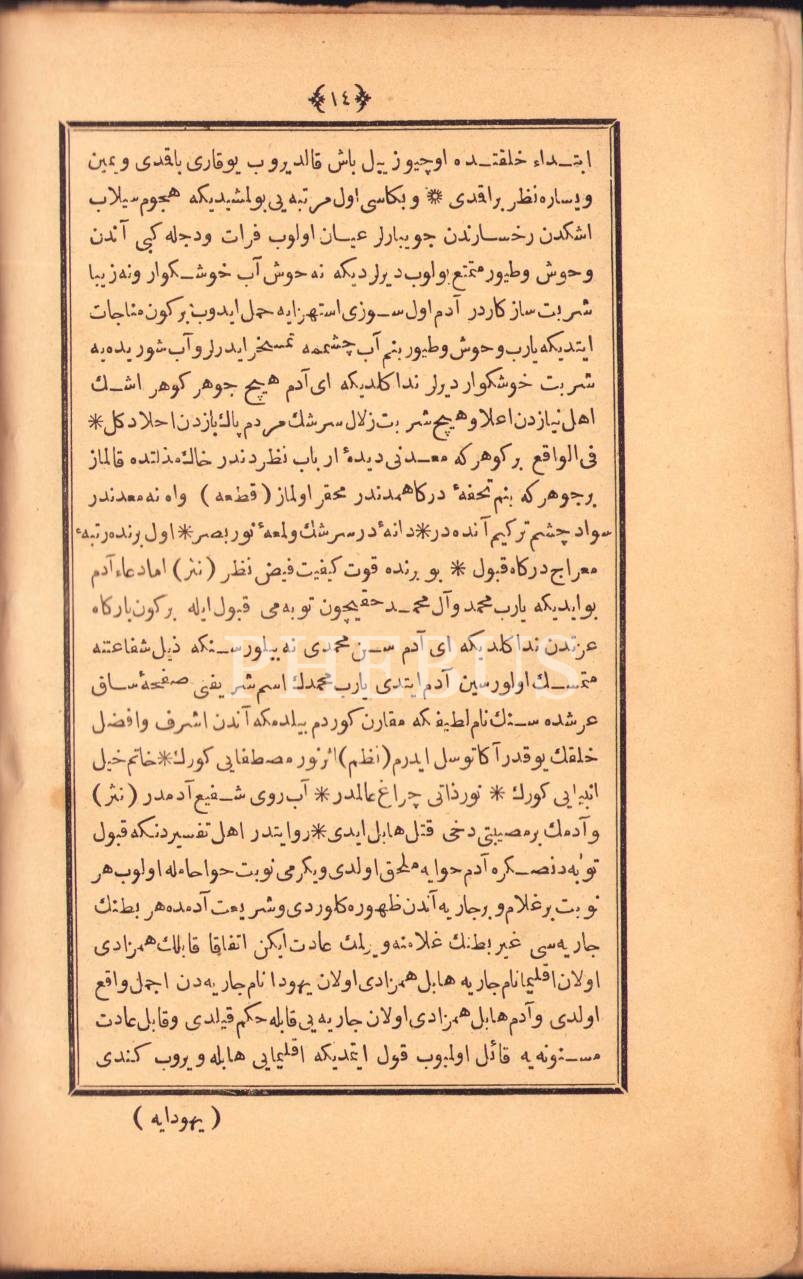 ﴿١٤﴾
ابتداء خلقتده اوچیوز ییل باش قالدیروب یوقاری باقدی ویمین
ویساره نظر براقدی * وبکاسی اول مرتبه یی بولمشیدیکه هجوم سیلاب
اشکدن رخسارندن جویبارلر عیان اولوب فرات ودجله کبی آندن
وحوش وطیور متمتع بولوب دیرلردیکه نه خوش آب خوشکوار ونه زیبا
شربت سازکاردر آدم اول سوزی استهزایه حمل ایدوب برکون مناجات
ایتدیکه یارب وحوش وطیور بنم آب چشممه تمسخر ایدرلر وآب شوریده یه
شربت خوشکوار دیرلر ندا کلدیکه ای آدم هیچ جوهر کوهر اشك
اهل نیازدن اعلا وهیچ شربت زلال سرشك مردم پاك بازدن احلا دکل *
فی الواقع بر کوهرکه معدنی دیدۀ ارباب نظردندر خاك مذلتده قالماز
برجوهرکه بنم تحفۀ درکاهمدندر محقر اولماز (قطعه) واه نه معدندر
سواد چشم ترکیم آنده در * دانۀ در سرشك ولمعۀ نور بصر * اول برنده رتبۀ
معراج درکاه قبول * بو برنده قوت کیفیت فیض نظر (نثر) اما دعاء آدم
بو ایدیکه یارب محمد وآل محمد حقیچون توبه می قبول ایله برکون بارکاه
عزتدن ندا کلدیکه ای آدم سن محمدی نه بیلورسنکه ذیل شفاعتنه
متمسك اولورسین آدم ایتدی یارب محمدك اسم شریفنی صفحۀ ساق
عرشده سنك نام لطیفکه مقارن کوردم بیلدمکه آندن اشرف وافضل
خلقك یوقدر آکا توسل ایدرم (نظم) اثر نور مصطفایی کورك * خاتم خیل
انبیایی کورك * نور ذاتی چراغ عالمدر * آب روی شفیع آدمدر (نثر)
وآدمك بر مصیبتی دخی قتل هابل ایدی * روایتدر اهل تفسیردنکه قبول
توبه دنصکره آدم حوایه ملحق اولدی ویکرمی نوبت حوا حامله اولوب هر
نوبت بر غلام وبر جاریه آندن ظهوره کلوردی وشریعت آدمده هر بطنك
جاریه سی غیر بطنك غلامنه ویرلمك عادت ایکن اتفاقا قابلك همزادی
اولان اقلیما نام جاریه هابل همزادی اولان یهودا نام جاریه دن اجمل واقع
اولدی وآدم هابل همزادی اولان جاریه یی قابله حکم قیلدی وقابل عادت
مسنونه یه قائل اولمیوب قول ایتمدیکه اقلیمایی هابله ویروب کندی
(یهودایه)
PHEBUS